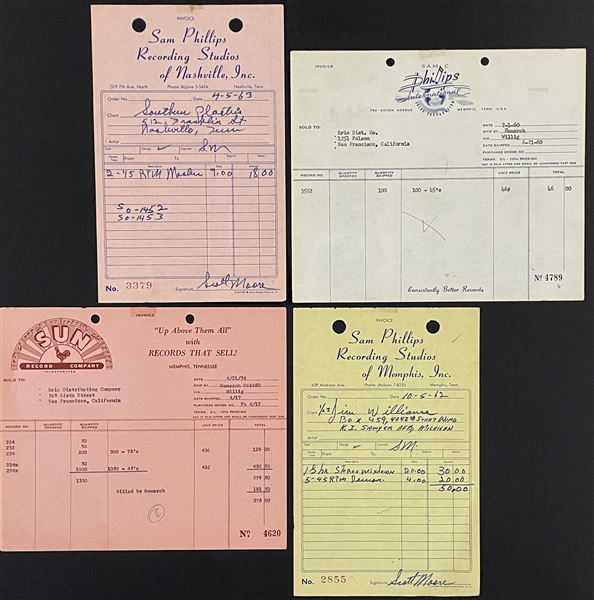 INVOICE
Sam Phillips
Recording Studios
of Nashville, Inc.
319 7th Ave. North Phone Alpine 5-5424 Nashville, Tenn.
Order No. Date 4-5-63
Client Southern Plastics
512 Franklin St
Nashville, Tenn
Charge ✓ SM
From To Regarding
2-45 RPM Master 9.00 18.00
SO-1452
SO-1453
No. 3379 Signature Scott Moore
INVOICE
SAM C.
Phillips
International
706 UNION AVENUE MEMPHIS, TENN., U.S.A.
SOLD TO:
Eric Dist. Co.
1251 Folsom
San Francisco, California
DATE 7-1-60
SHIP BY Monarch
VIA Willig
DATE SHIPPED 6-21-60
PURCHASE ORDER NO.
TERMS: 2% 10TH PROXIMO
NET IF PAID AFTER AND SHALL BE CONSIDERED PAST DUE
RECORD NO. QUANTITY ORDERED QUANTITY SHIPPED UNIT PRICE TOTAL
3552 100 100 - 45's 46¢ 46 00
Consistently Better Records
Nº 4789
INVOICE
SUN
RECORD COMPANY
INCORPORATED
"Up Above Them All"
with
RECORDS THAT SELL!
MEMPHIS, TENNESSEE
SOLD TO:
Eric Distributing Company
309 Sixth Street
San Francisco, California
DATE 4/21/56
SHIP BY Monarch
VIA Willig
DATE SHIPPED 4/17
PURCHASE ORDER NO. 4/17
TERMS: 2% 10TH PROXIMO
NET IF PAID AFTER AND SHALL BE CONSIDERED PAST DUE
RECORD NO. QUANTITY ORDERED QUANTITY SHIPPED UNIT PRICE TOTAL
224 50
232 50
234 200 300 - 78's 43¢ 129 00
224x 50
234x 1000 1050 - 45's 41¢ 430 50
1350 559 50
Billed by Monarch 181 50
378 00
Nº 4620
INVOICE
Sam Phillips
Recording Studios
of Memphis, Inc.
639 Madison Ave. Phone JAckson 7-8233 Memphis, Tenn.
Order No. Date 10-5-62
Client Jim Williams
Box 459, 4042nd Strat Wing
K.I. Sawyer AFB, Michigan
SM
From To Regarding
1½ hr Stereo mixdown 20.00 30.00
5-45 RPM Demos 4.00 20.00
50.00
No. 2855 Signature Scott Moore